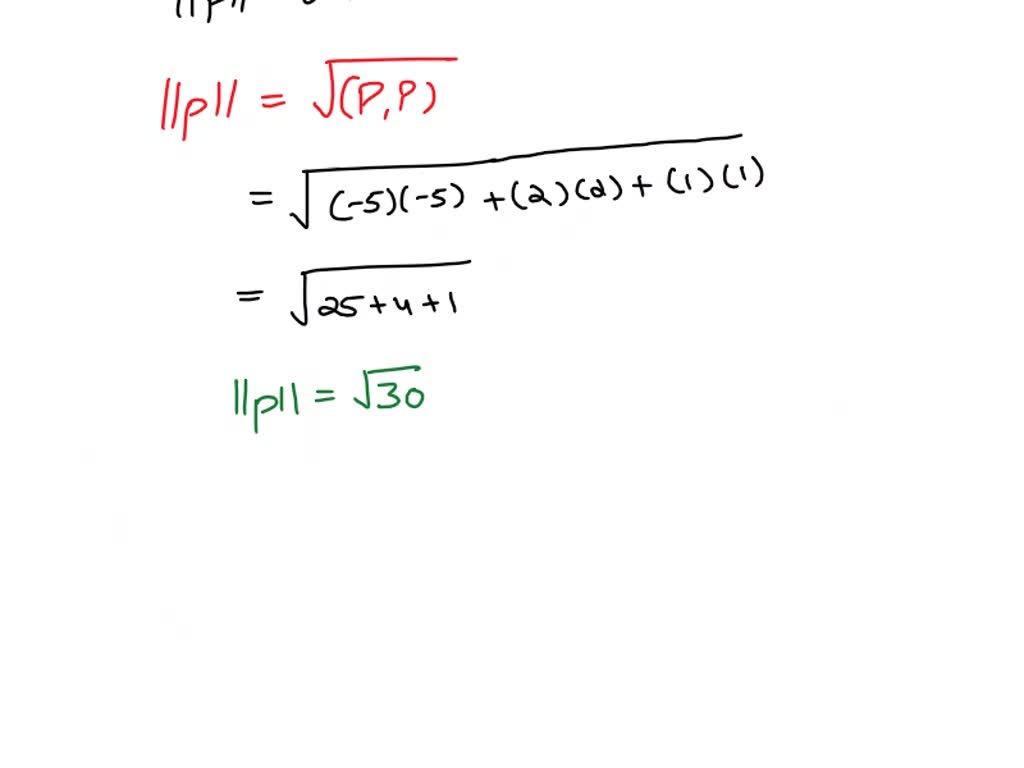 ||p||
||p|| = √(P,P)
= √(-5)(-5) + (2)(2) + (1)(1)
= √25+4+1
||p|| = √30